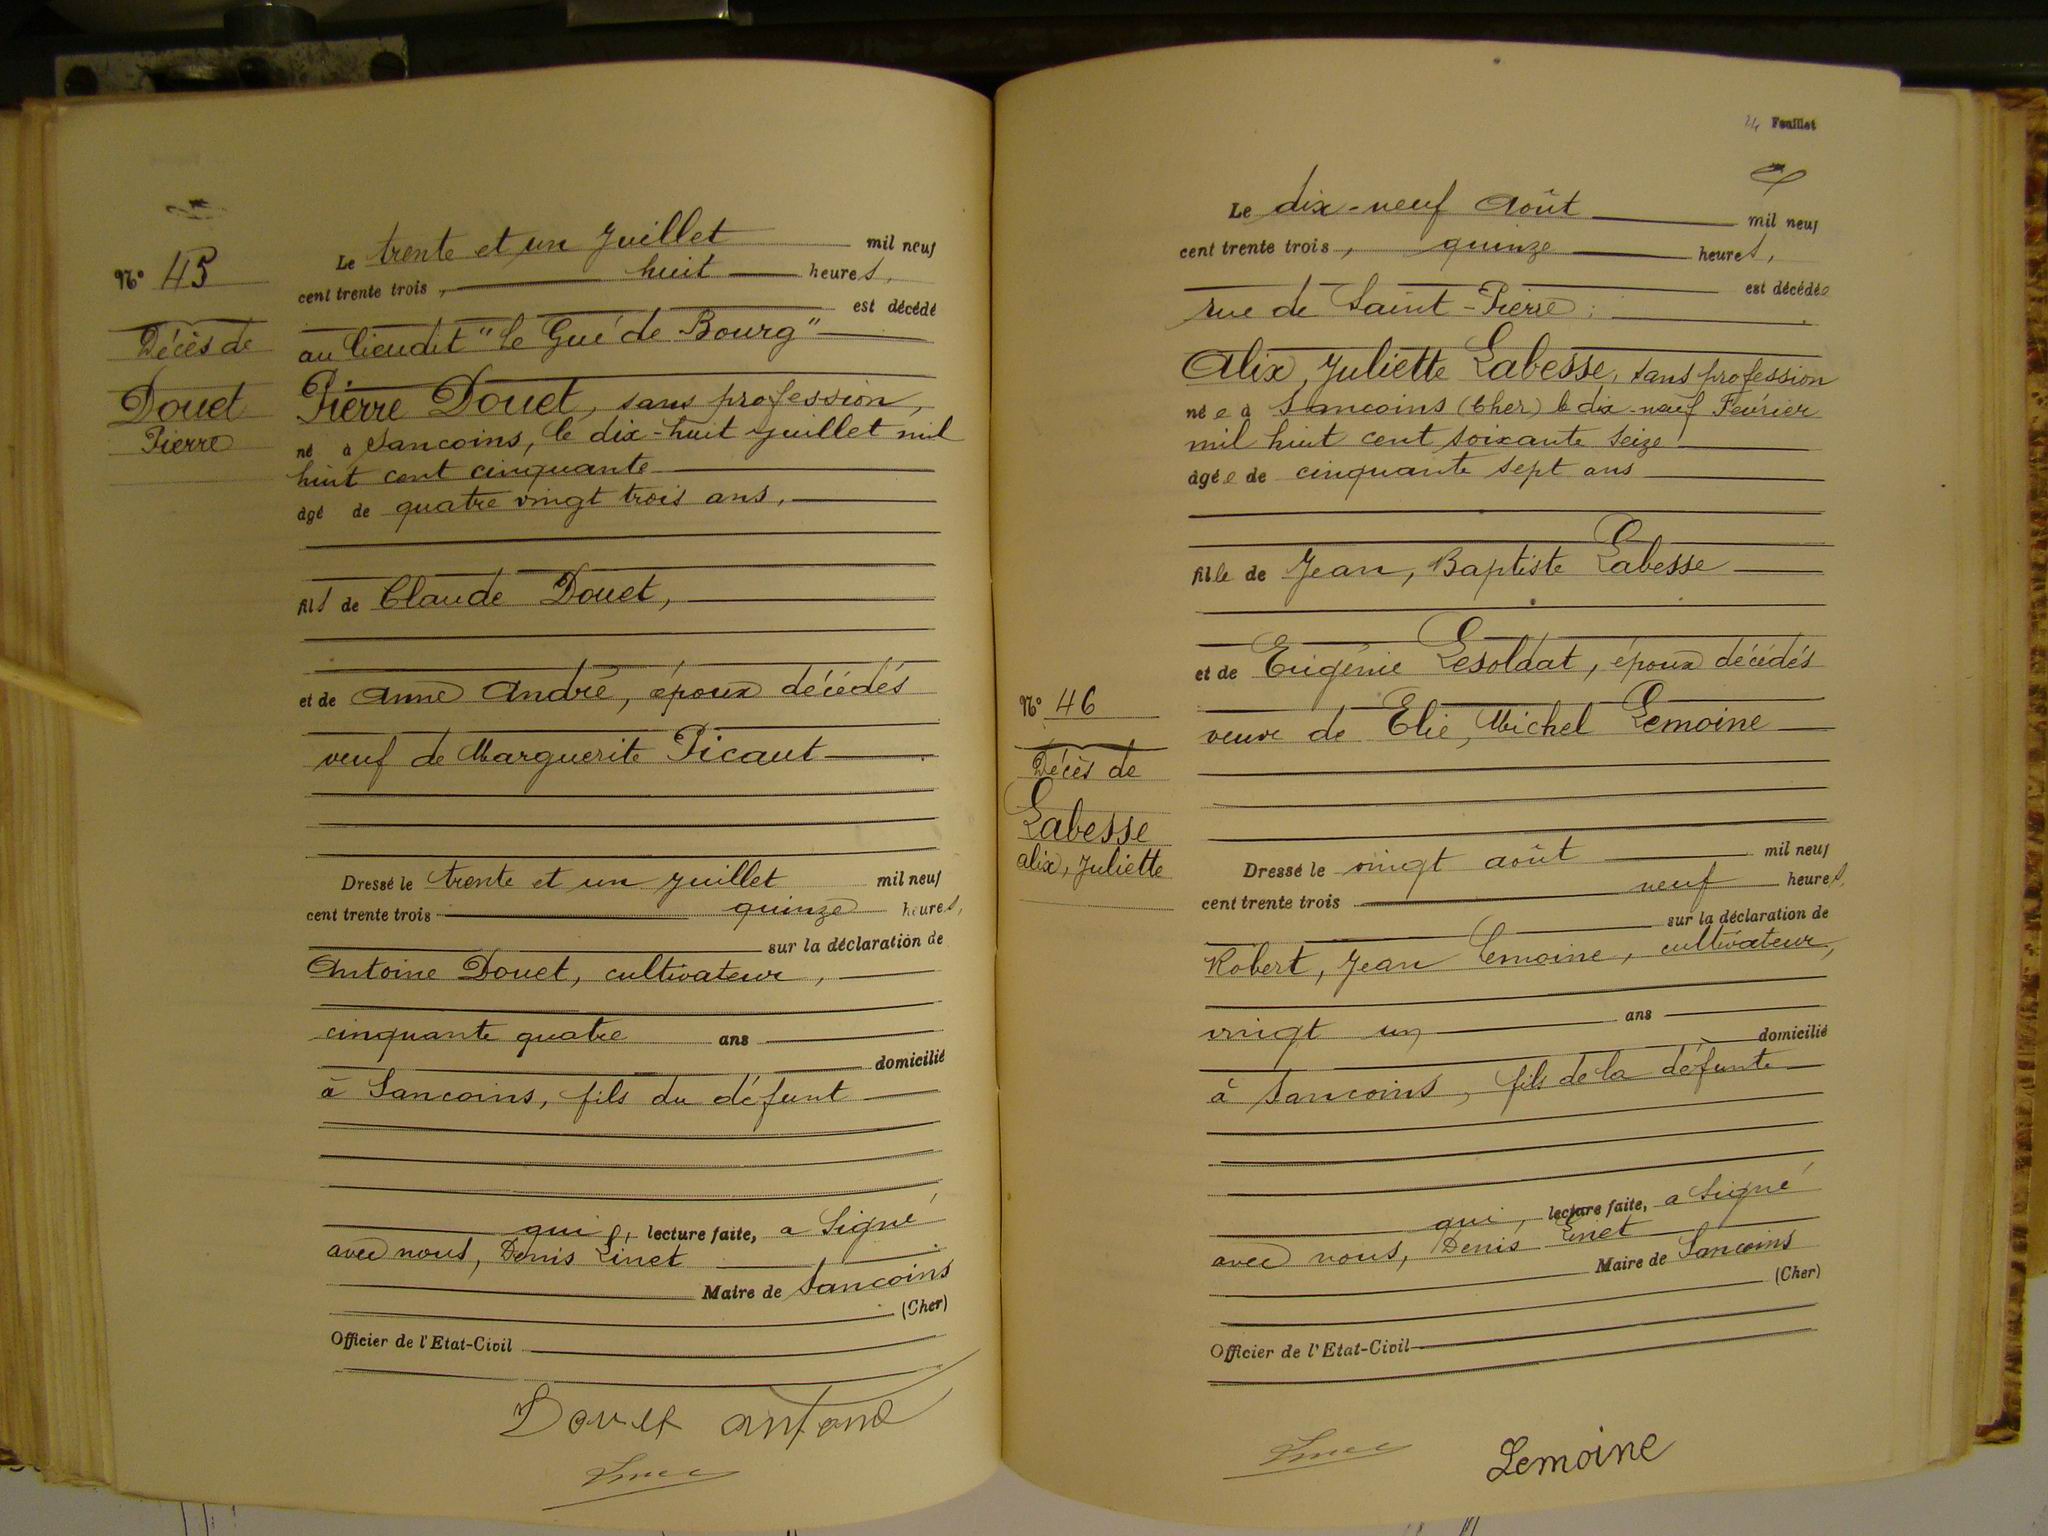 Nº 45
Décès de
Douet
Pierre
Le trente et un Juillet mil neuf
cent trente trois, huit heures,
est décédé
au lieudit "le Gué de Bourg"
Pierre Douet, sans profession,
né à Sancoins, le dix-huit juillet mil
huit cent cinquante
âgé de quatre vingt trois ans,
fils de Claude Douet,
et de Anne André, époux décédés
veuf de Marguerite Picaut
Dressé le trente et un juillet mil neuf
cent trente trois quinze heures,
sur la déclaration de
Antoine Douet, cultivateur,
cinquante quatre ans
domicilié
à Sancoins, fils du défunt
qui, lecture faite, a signé
avec nous, Denis Linet
Maire de Sancoins
(Cher)
Officier de l'Etat-Civil
Douet antoine
Feuillet
Nº 46
Décès de
Labesse
alix, Juliette
Le dix-neuf Août mil neuf
cent trente trois, quinze heures,
est décédée
rue de Saint-Pierre;
Alix, Juliette Labesse, sans profession
née à Sancoins (Cher) le dix-neuf Février
mil huit cent soixante seize
âgée de cinquante sept ans
fille de Jean, Baptiste Labesse
et de Eugénie Lesoldat, époux décédés
veuve de Elie, Michel Lemoine
Dressé le vingt août mil neuf
cent trente trois neuf heures,
sur la déclaration de
Robert, Jean Lemoine, cultivateur,
vingt un ans
domicilié
à Sancoins, fils de la défunte
qui, lecture faite, a signé
avec nous, Denis Linet
Maire de Sancoins
(Cher)
Officier de l'Etat-Civil
Lemoine